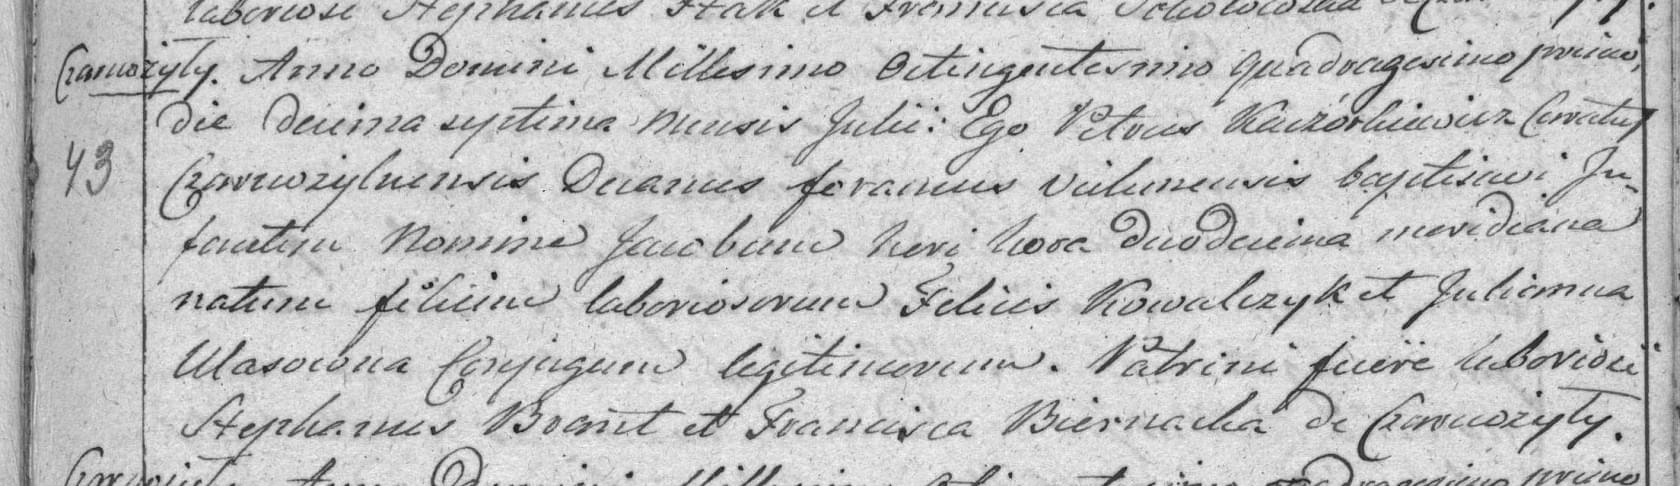 laboriosi Stephanus Ptak et Francisca
Czarnożyły. Anno Domini Millesimo Octingentesimo Quadragesimo primo,
die decima septima Mensis Julii: Ego Petrus Kaczorkiewicz Curatus
43
Czarnozylnensis Decanus foraneus Vielunensis baptisavi In-
fantem Nomine Jacobum heri hora duodecima meridiana
natum filium laboriosorum Felicis Kowalczyk et Julianna
Ulasowna Conjugum legitimorum. Patrini fuere laboriosi
Stephanus Brant et Francisca Biernacka de Czarnożyły.
Anno Domini Millesimo primo